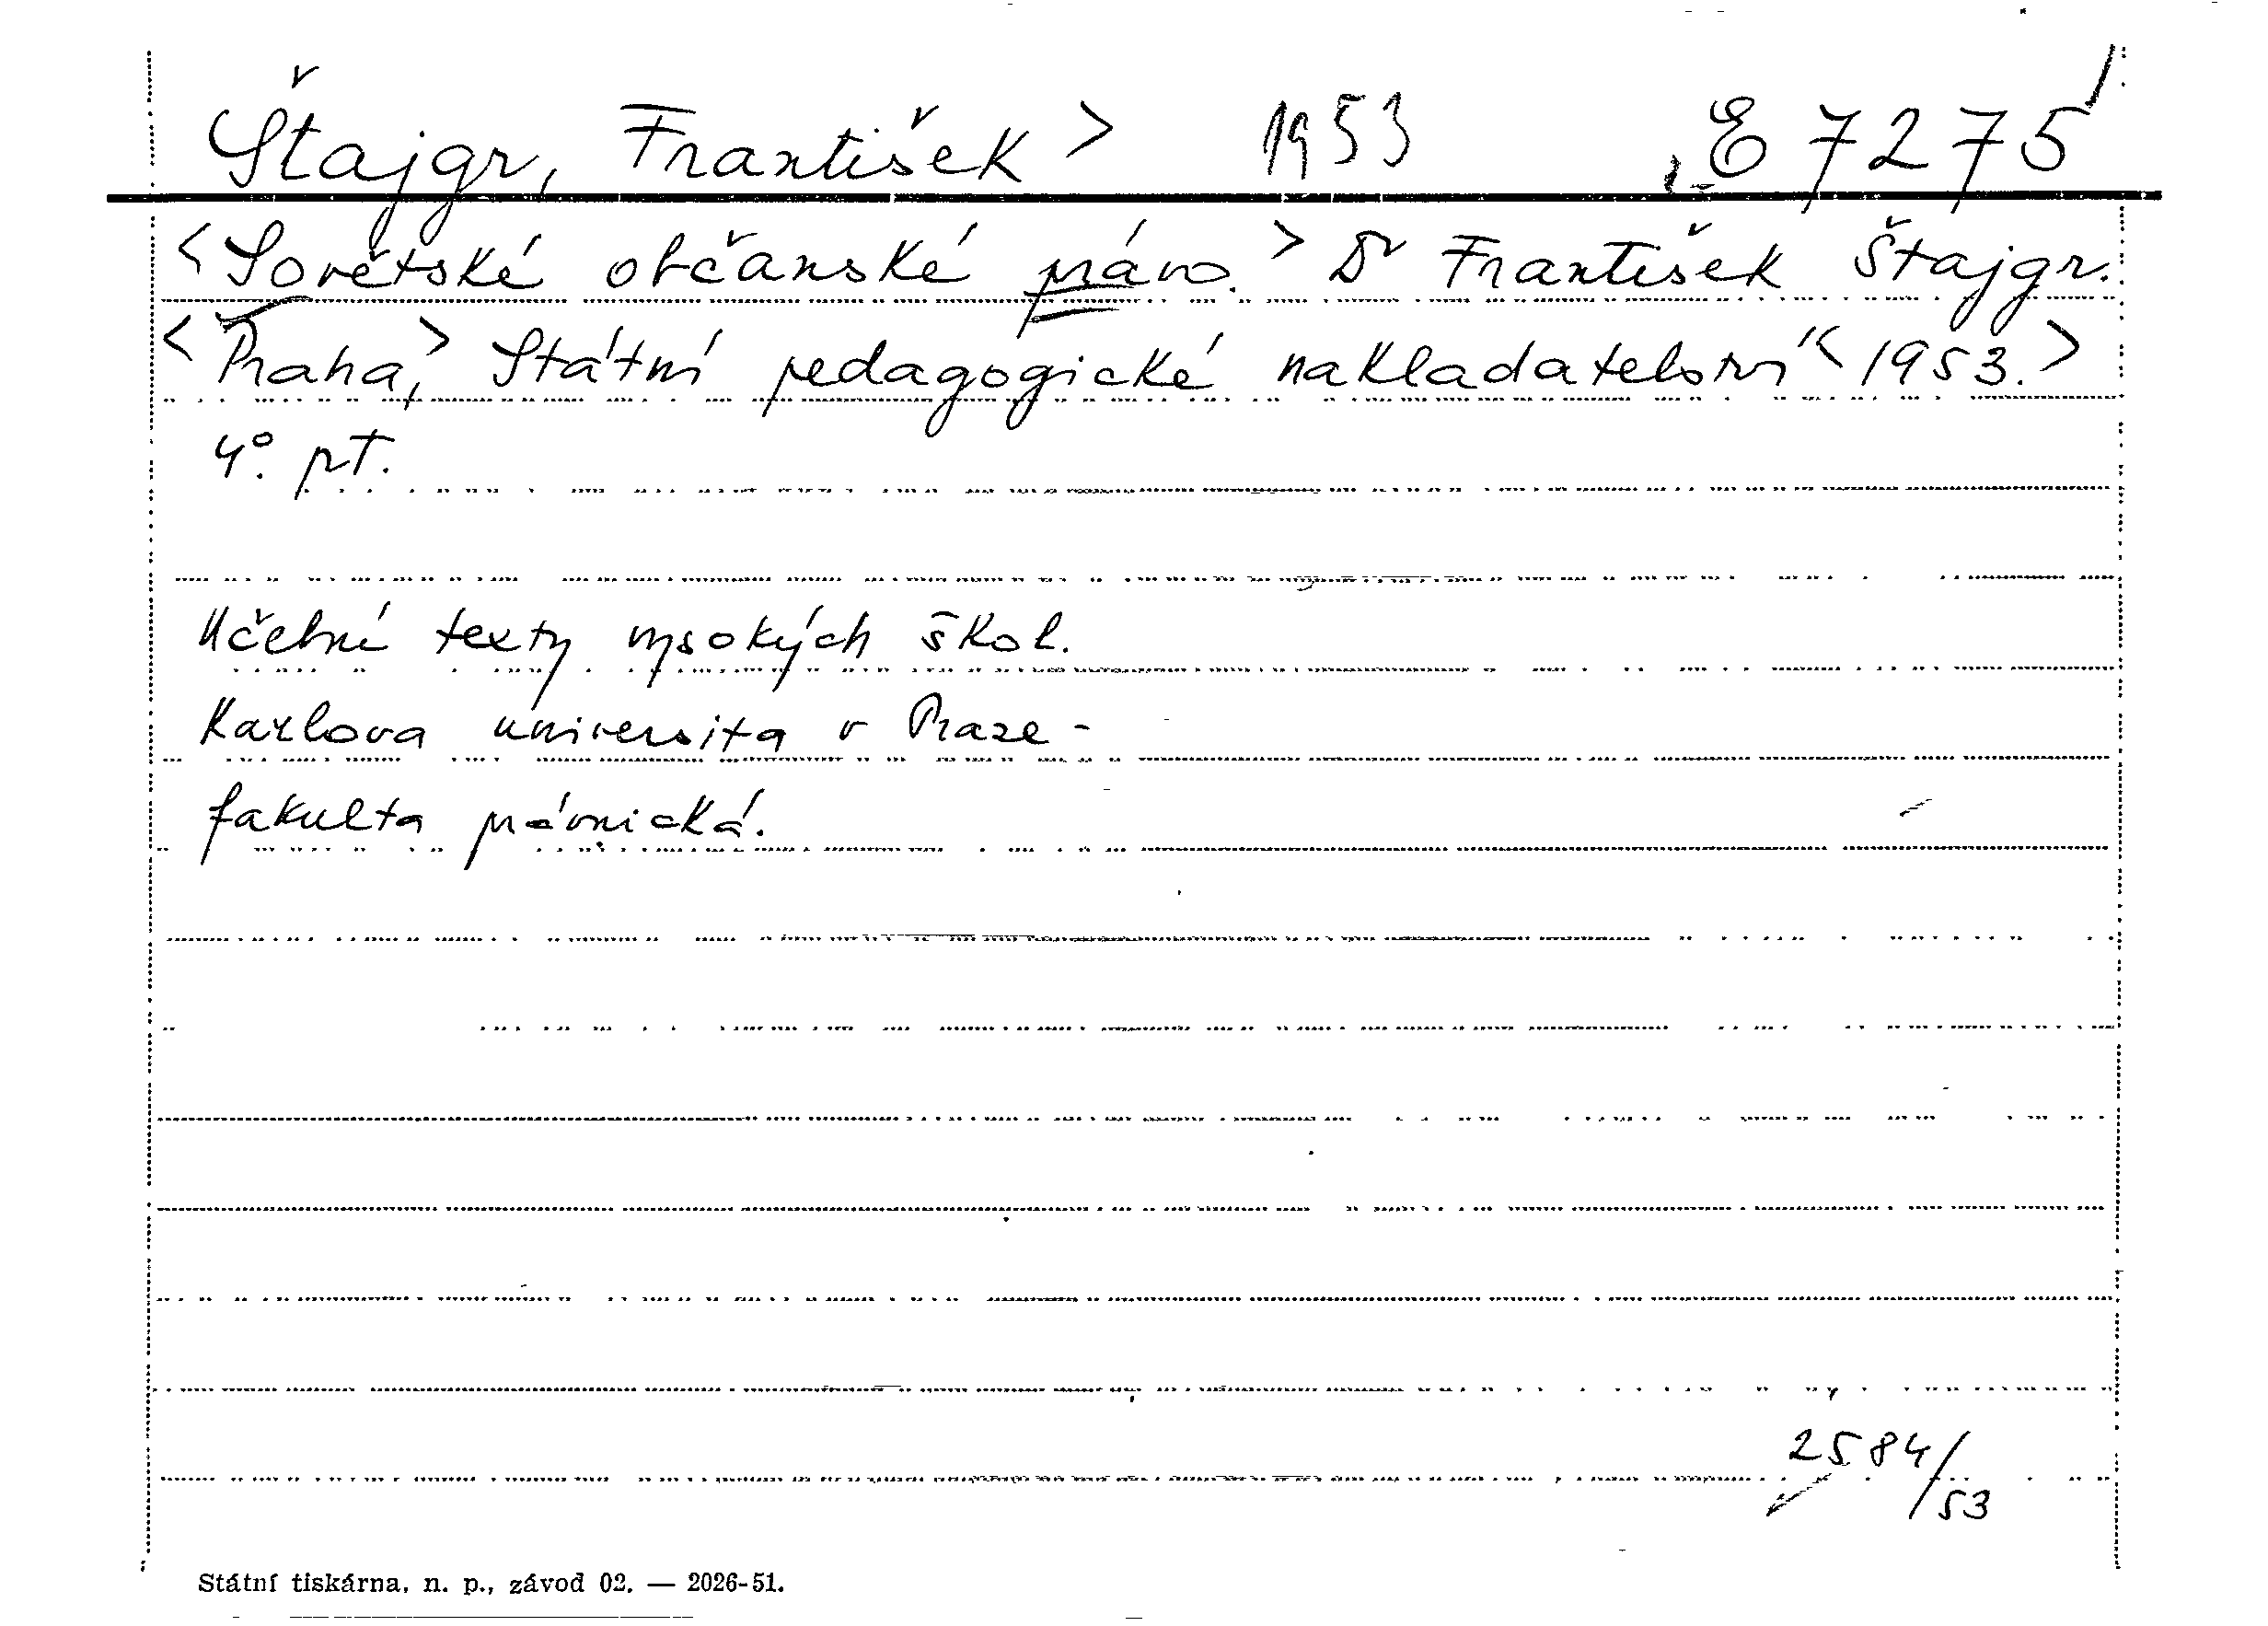 Štajgr, František > 1953 E 7275
<Sovětské občanské právo.> Dr František Štajgr.
<Praha,> Státní pedagogické nakladatelství <1953.>
4°. pt.
Učební texty vysokých škol.
Karlova universita v Praze -
fakulta právnická.
2584/53
Státní tiskárna, n. p., závod 02. — 2026-51.